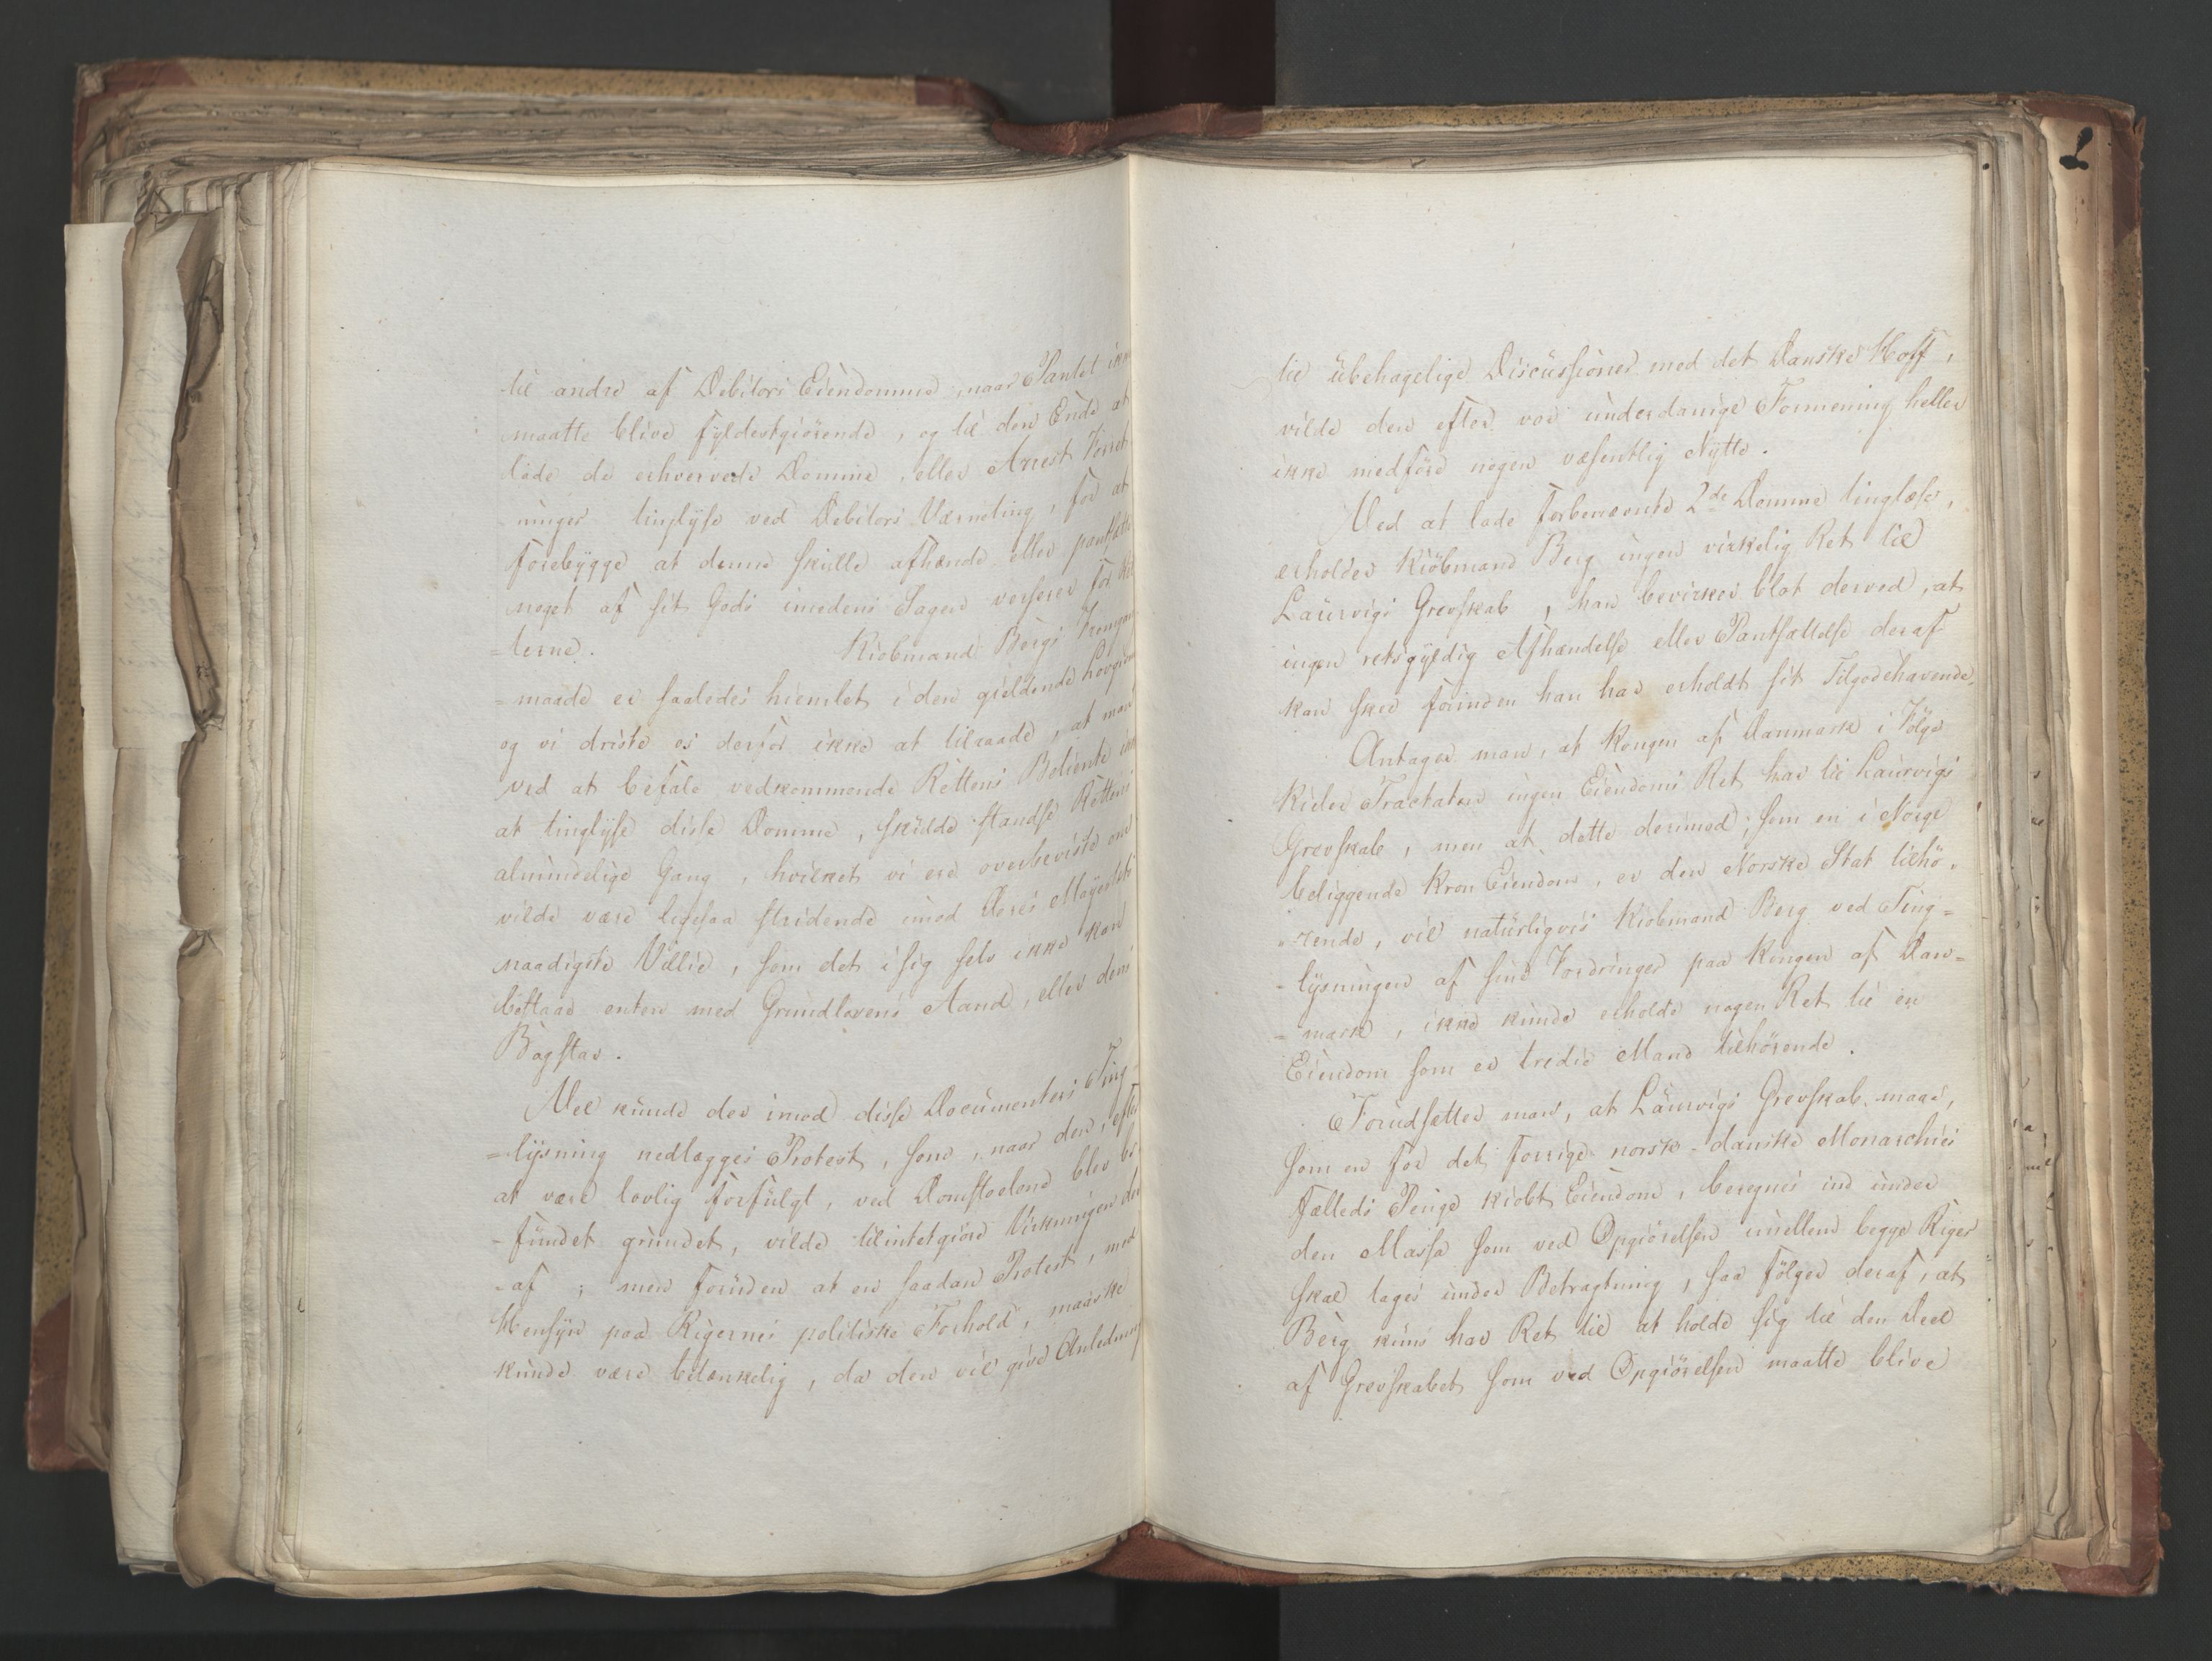 til andre af Debitors Eiendomme, naar Pantet ikke
maatte blive fyldestgiørende, og til den Ende at
lade de erhvervede Domme, eller Arrest Forret
ninger tinglyse ved Debitors Værneting, for at
forebygge at denne skulle afhænde eller pantsætte
noget af sit Gods imedens Sagen verserer for Ret
=terne. Kiøbmand Bergs Fremgangs
=maade er saaledes hiemlet i den gieldende Lovgivning
og vi driste os derfor ikke at tilraade, at man
ved at befale vedkommende Rettens Betiente ikke
at tinglyse disse Domme, skulde standse Rettens
almindelige Gang, hvilket vi ere overbeviste om
vilde være ligesaa stridende imod Deres Mayestæts
naadigste Villie, som det i sig selv ikke kan
bestaae enten med Grundlovens Aand, eller dens
Bogstav.
Vel kunde der imod disse Documenters Ting
=lysning nedlægges Protest, som, naar den, efter
at være lovlig forfulgt, ved Domstolene blev be
=fundet grundet, vilde tilintetgiøre Virkningen der
=af; men foruden at en saadan Protest, med
Hensyn paa Rigernes politiske Forhold, maaske
kunde være betænkelig, da den vil give Anledning
til ubehagelige Discussioner med det Danske Hoff,
vilde den efter vor underdanige Formening heller
ikke medføre nogen væsentlig Nytte.
Ved at lade forbenævnte 2de Domme tinglæse,
erholder Kiöbmand Berg ingen virkelig Ret til
Laurvigs Grevskab, han bevirker blot derved, at
ingen retsgyldig Afhændelse eller Pantsættelse deraf
kan skee forinden han har erholdt sit Tilgodehavende.
Antager man, at Kongen af Danmark i Fölge
Kieler Tractaten ingen Eiendoms Ret har til Laurvigs
Grevskab, men at dette derimod, som en i Norge
beliggende Kron Eiendom, er den Norske Stat tilhö,
=rende, vil naturligvis Kiøbmand Berg ved Ting=
=lysningen af sine Fordringer paa Kongen af Dan=
=mark, ikke kunde erholde nogen Ret til en
Eiendom som er tredie Mand tilhörende.
Forudsætter man, at Laurvigs Grevskab maae,
som en for det forrige norsk-danske Monarchies
fælleds Penge kiøbt Eiendom, beregnes ind under
den Massa som ved Opgiörelsen imellem begge Riger
skal tages under Betragtning, saa fölger deraf, at
Berg kuns har Ret til at holde sig til den Deel
af Grevskabet som ved Opgiörelsen maatte blive